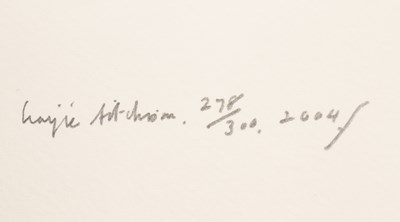 Craigie Aitchison. 278/300. 2004